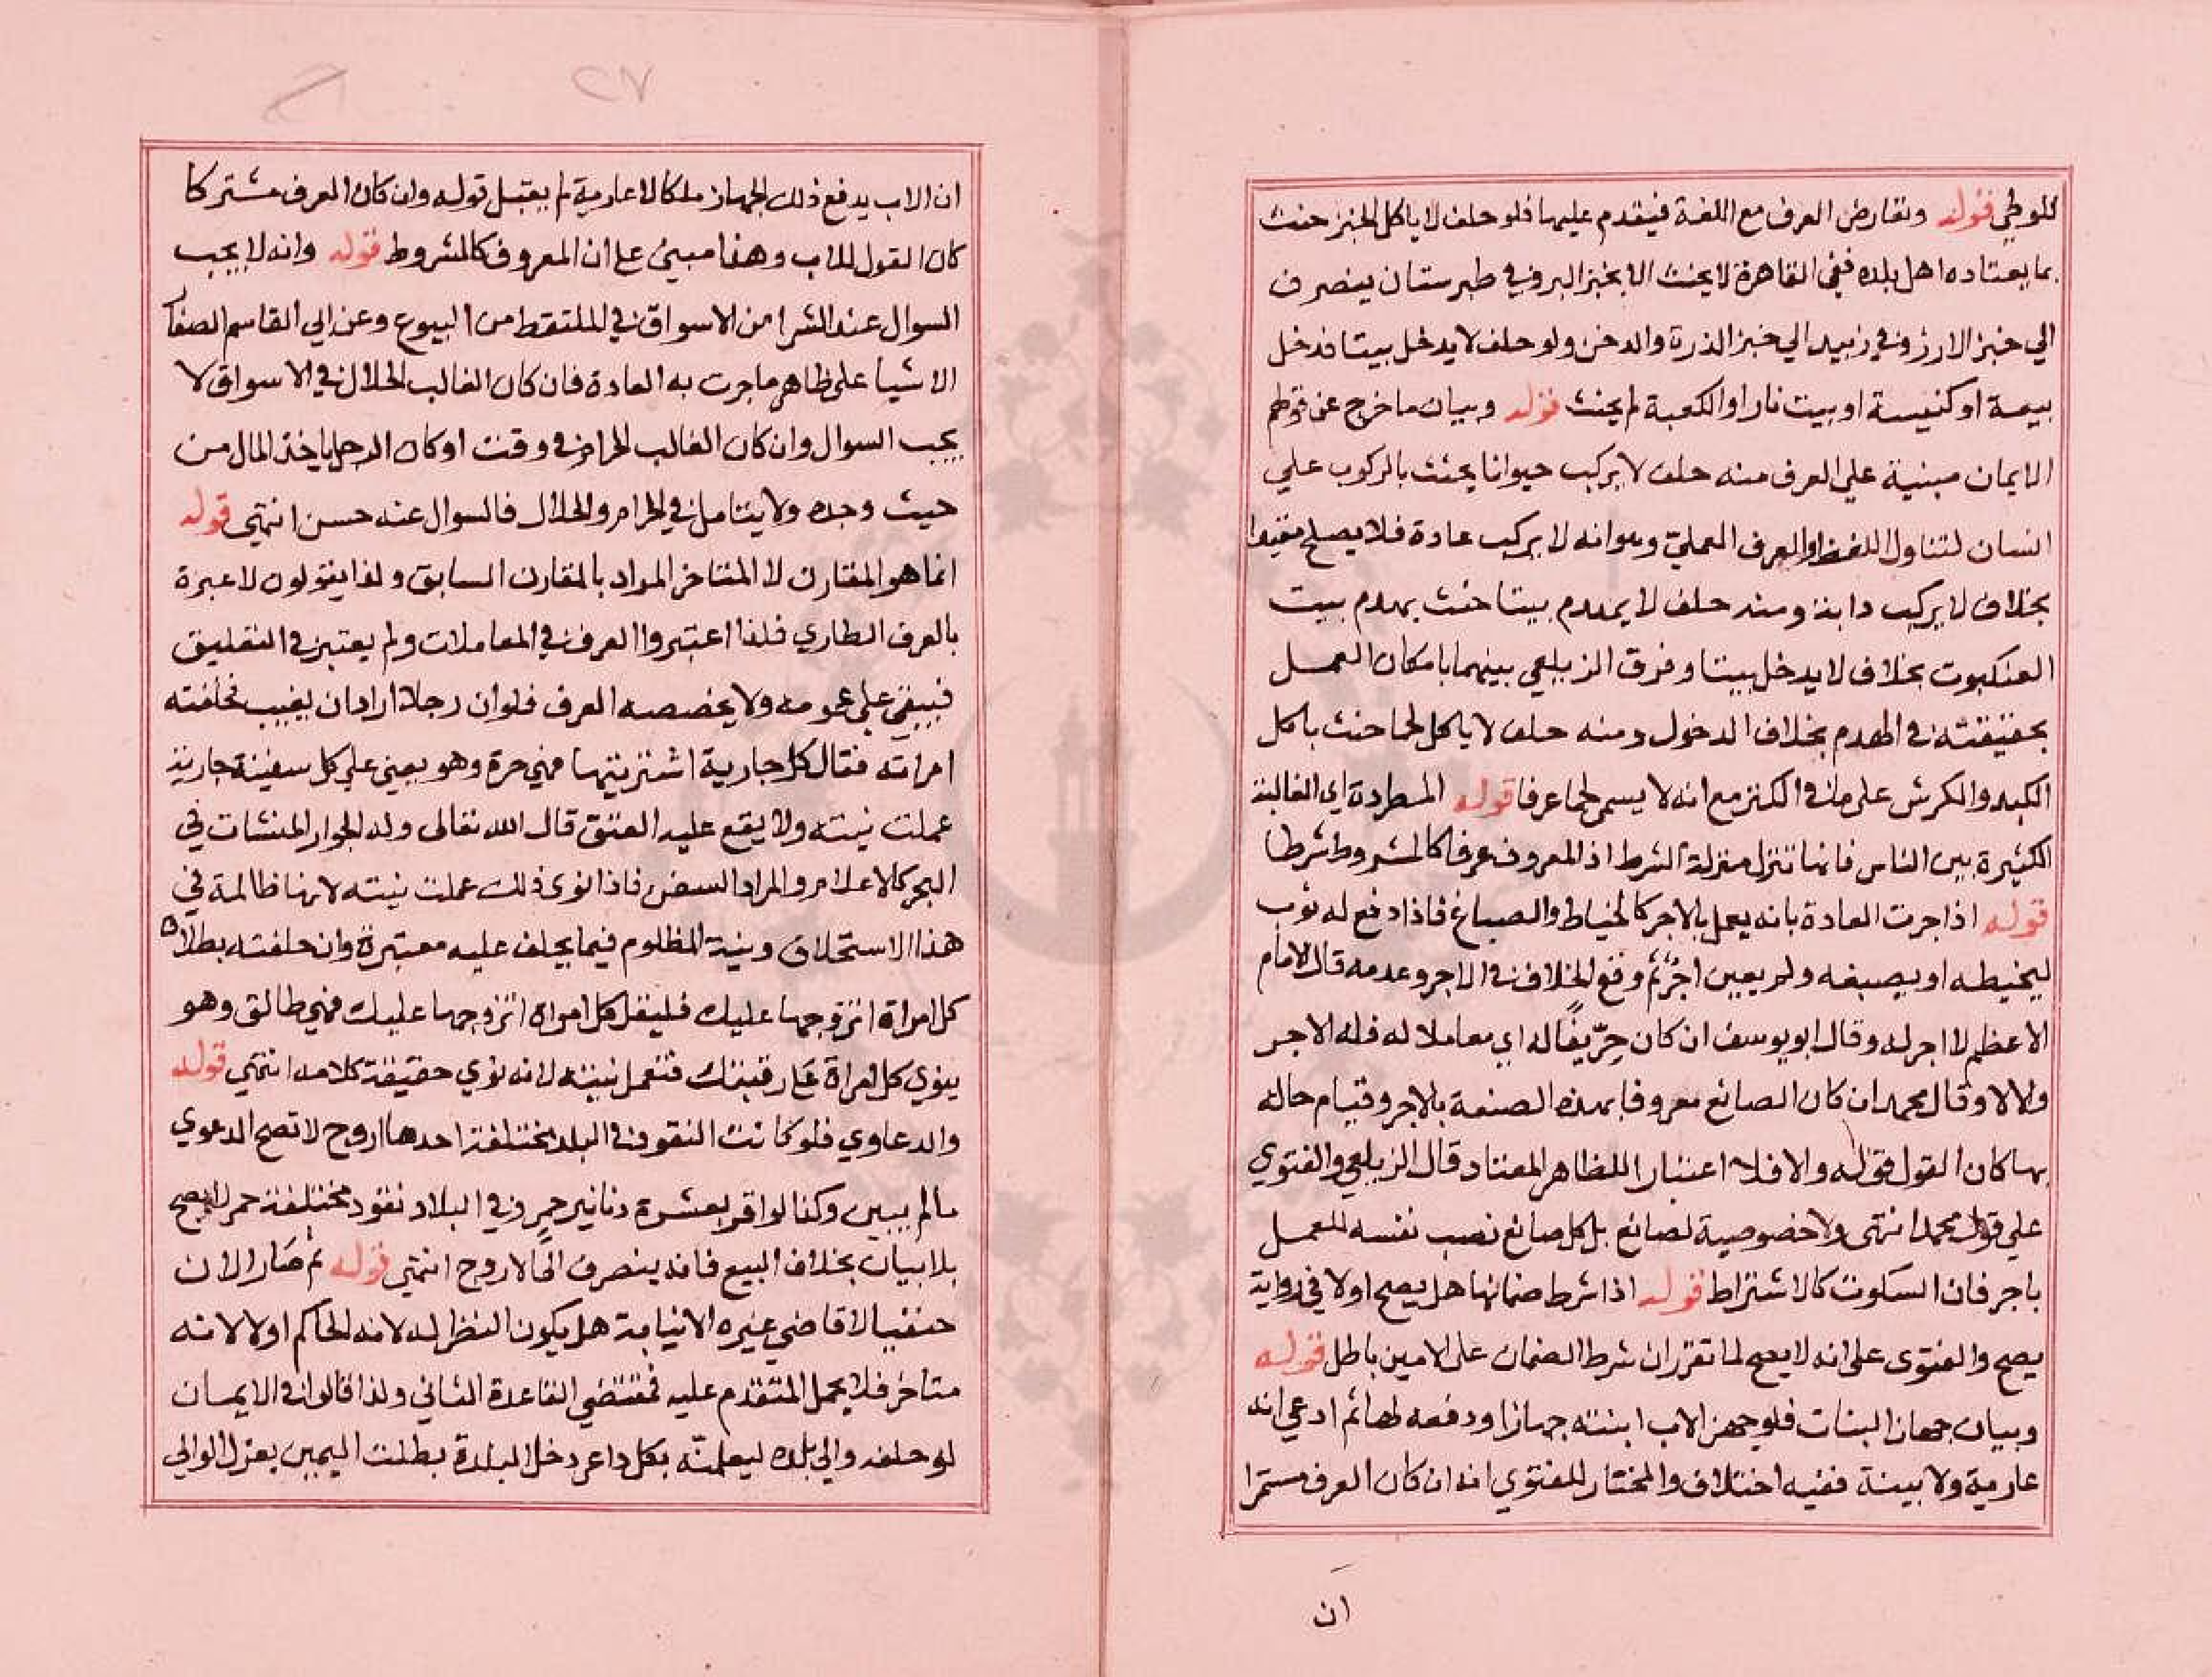 للوطي قوله وتعارض العرف مع اللغة فيقدم عليها فلو حلف لا ياكل الخبز حنث
بما يعتاده اهل بلده ففي القاهرة لا يحنث الا بخبز البر وفي طبرستان ينصرف
الي خبز الارز وفي زبيد الي خبز الذرة والدخن ولو حلف لا يدخل بيتا فدخل
بيعة او كنيسة او بيت نار او الكعبة لم يحنث قوله وبيان ما خرج عن قولهم
الايمان مبنية علي العرف منه حلف لا يركب حيوانا يحنث بالركوب علي
انسان لتناول اللفظ والعرف العملي وهو انه لا يركب عادة فلا يصلح مقيدا
بخلاف لا يركب دابة ومنه حلف لا يهدم بيتا حنث بهدم بيت
العنكبوت بخلاف لا يدخل بيتا وفرق الزيلعي بينهما بامكان العمل
بحقيقته في الهدم بخلاف الدخول ومنه حلف لا ياكل لحما حنث باكل
الكبد والكرش علي ما في الكنز مع انه لا يسمي لحما عرفا قوله المطردة اي الغالبة
الكثيرة بين الناس فانها تنزل منزلة الشرط اذ المعروف عرفا كالمشروط شرطا
قوله اذا جرت العادة بانه يعمل بالاجر كالخياط والصباغ فاذا دفع له ثوب
ليخيطه او يصبغه ولم يعين اجر ثم وقع الخلاف في الاجر وعدمه قال الامام
الاعظم لا اجر له وقال ابو يوسف ان كان حريفا له اي معاملا له فله الاجر
والا لا وقال محمد ان كان الصانع معروفا بهذه الصنعة بالاجر وقيام حاله
بها كان القول قوله والا فلا اعتبار اللظاهر المعتاد قال الزيلعي والفتوي
علي قول محمد انتهي ولا خصوصية لصانع بل كل صانع نصب نفسه للعمل
باجر فان السكوت كالاشتراط قوله اذا شرط ضمانها هل يصح او لا في رواية
يصح والفتوي علي انه لا يصح لما تقرر ان شرط الضمان علي الامين باطل قوله
وبيان جهاز البنات فلو جهز الاب ابنته جهازا ودفعه لها ثم ادعي انه
عارية ولا بينة ففيه اختلاف والمختار للفتوي انه ان كان العرف مستمرا
ان
٢٧
ان الاب يدفع ذلك الجهاز ملكا لا عارية لم يقبل قوله وان كان العرف مشتركا
كان القول للاب وهذا مبني علي ان المعروف كالمشروط قوله وانه لا يجب
السوال عند الشرا من الاسواق في الملتقط من البيوع وعن ابي القاسم الصفار
الاشيا علي ظاهر ما جرت به العادة فان كان الغالب الحلال في الاسواق لا
يجب السوال وان كان الغالب الحرام في وقت او كان الرجل ياخذ المال من
حيث وجده ولا يتامل في الحرام والحلال فالسوال عنه حسن انتهي قوله
انما هو المقارن لا المتاخر المراد بالمقارن السابق ولذا يقولون لا عبرة
بالعرف الطاري فلذا اعتبروا العرف في المعاملات ولم يعتبر في التعليق
فيبقي علي عمومه ولا يخصصه العرف فلو ان رجلا اراد ان يغيب فحلفته
امراته فقال كل جارية اشتريتها فهي حرة وهو يعني علي كل سفينة جارية
عملت نيته ولا يقع عليه العتق قال الله تعالى وله الجوار المنشات في
البحر كالاعلام والمراد السفن فاذا نوى ذلك عملت نيته لانها ظالمة في
هذا الاستحلاف ونية المظلوم فيما يحلف عليه معتبرة وان حلفته بطلاق
كل امراة اتزوجها عليك فليقل كل امراة اتزوجها عليك فهي طالق وهو
ينوي كل امراة علي رقبتك فتعمل نيته لانه نوي حقيقة كلامه انتهي قوله
والدعاوي فلو كانت النقود في البلد مختلفة احدها اروح لا تصح الدعوي
مالم يبين وكذا لو اقر بعشرة دنانير حمر وفي البلاد نقود مختلفة حمر لا يصح
بلا بيان بخلاف البيع فانه ينصرف الي الاروح انتهي قوله ثم صار الان
حنفيا لا قاضي غيره الا نيابة هل يكون النظر له لانه الحاكم او لا لانه
متاخر فلا يحمل المتقدم عليه فمقتضي القاعدة الثاني ولذا قالوا في الايمان
لو حلفه والي بلده ليعلمنه بكل داعر دخل البلدة بطلت اليمين بعزل الوالي